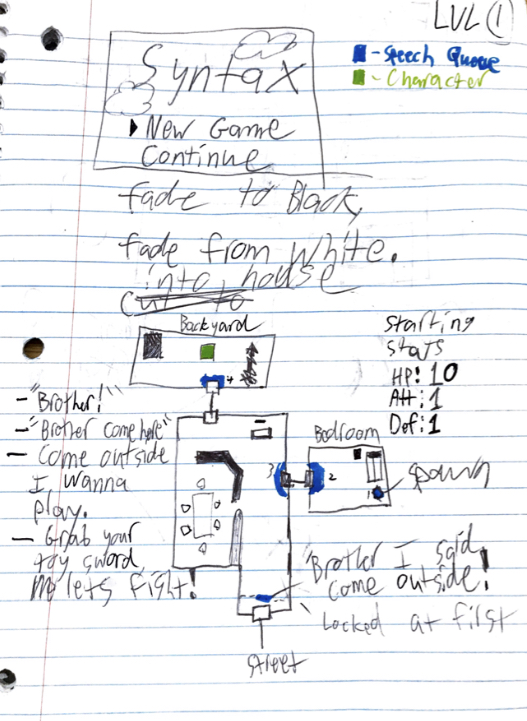 LVL 1
- Speech Queue
- Character
Syntax
New Game
Continue
fade to Black,
fade from white.
into house
Cut to
Backyard
Starting
Stats
HP: 10
Att: 1
Def: 1
- "Brother!"
- "Brother come here"
- Come outside
I wanna
play.
- Grab your
toy sword,
lets fight!
4
Bedroom
3
2
1
Spawn
"Brother I said,
come outside!
Locked at first
Street